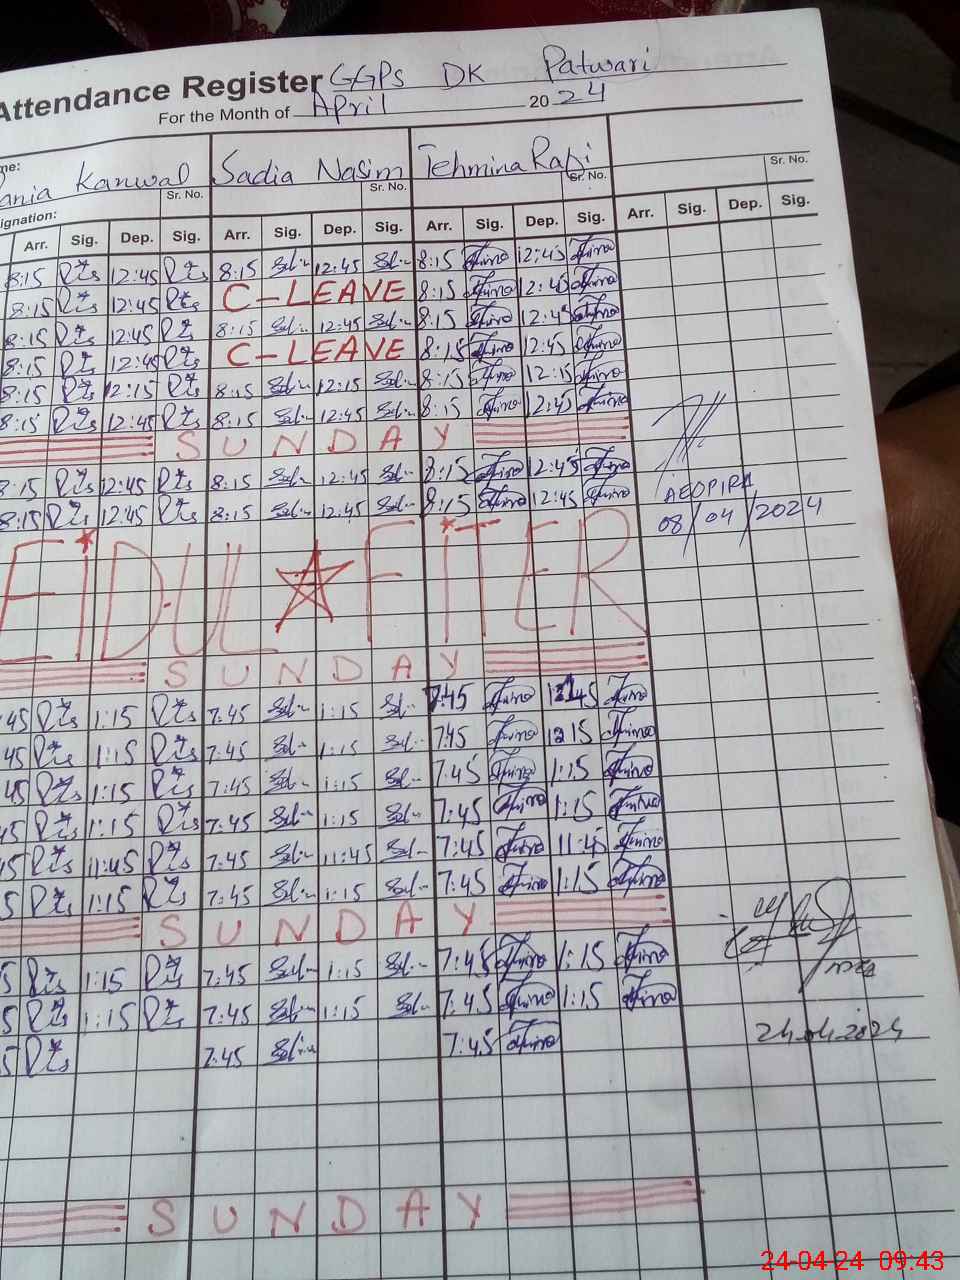 Attendance Register GGPS DK Patwari
For the Month of April 2024
me:
ania Kanwal Sr. No. Sadia Nasim Sr. No. Tehmina Rabi Sr. No. Sr. No.
signation:
Arr. Sig. Dep. Sig. Arr. Sig. Dep. Sig. Arr. Sig. Dep. Sig. Arr. Sig. Dep. Sig.
8:15 12:45 8:15 12:45 8:15 12:45
8:15 12:45 C-LEAVE 8:15 12:45
8:15 12:45 8:15 12:45 8:15 12:45
8:15 12:45 C-LEAVE 8:15 12:45
8:15 12:15 8:15 12:15 8:15 12:15
8:15 12:45 8:15 12:45 8:15 12:45
SUNDAY
8:15 12:45 8:15 12:45 8:15 12:45
8:15 12:45 8:15 12:45 8:15 12:45
AEOPIRA
08/04/2024
EIDUL FITER
SUNDAY
:45 1:15 7:45 1:15 7:45
45 1:15 7:45 1:15 7:45 1215
45 1:15 7:45 1:15 7:45 1:15
45 1:15 7:45 1:15 7:45 1:15
5 11:45 7:45 11:45 7:45 11:45
5 1:15 7:45 1:15 7:45 1:15
SUNDAY
5 1:15 7:45 1:15 7:45 1:15
5 1:15 7:45 1:15 7:45 1:15
5 7:45 7:45
24.04.2024
SUNDAY
24-04-24 09:43